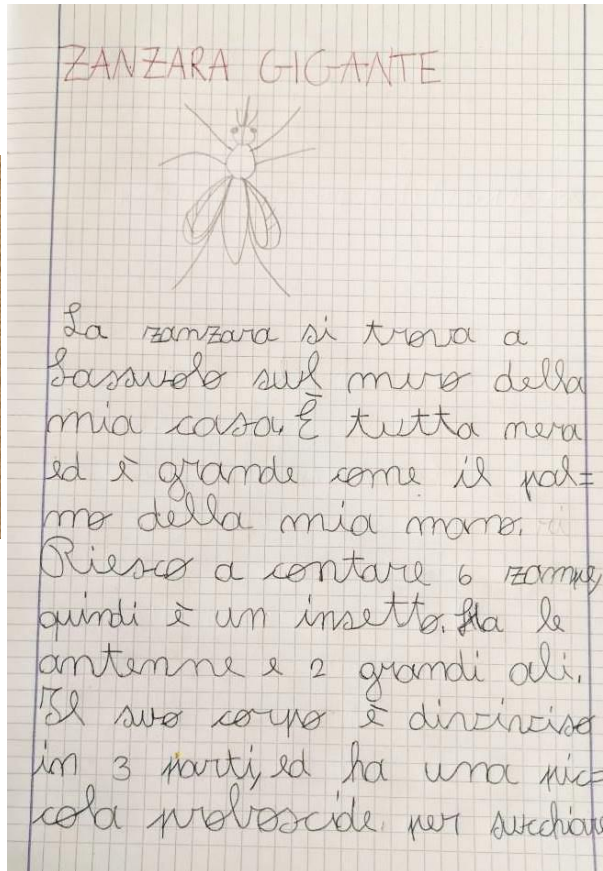 ZANZARA GIGANTE
La zanzara si trova a
Sassuolo sul muro della
mia casa. È tutta nera
ed è grande come il pal=
mo della mia mano.
Riesco a contare 6 zampe,
quindi è un insetto. Ha le
antenne e 2 grandi ali.
Il suo corpo è
in 3 parti, ed ha una pic=
cola proboscide per succhiare